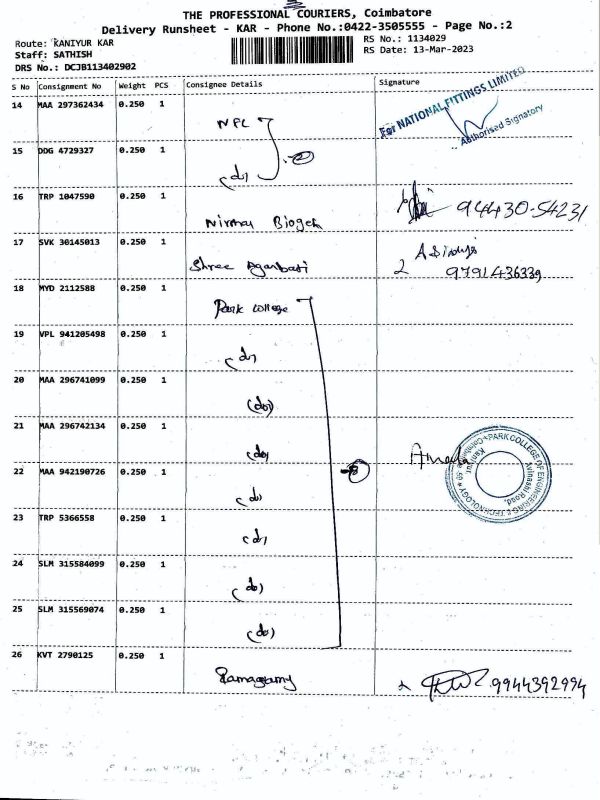 THE PROFESSIONAL COURIERS, Coimbatore
Delivery Runsheet - KAR - Phone No.:0422-3505555 - Page No.:2
Route: KANIYUR KAR
RS No.: 1134029
Staff: SATHISH
RS Date: 13-Mar-2023
DRS No.: DCJB113402902
S No Consignment No Weight PCS Consignee Details Signature
14 MAA 297362434 0.250 1
NFL
For NATIONAL FITTINGS LIMITED
Authorised Signatory
15 DDG 4729327 0.250 1
(do)
16 TRP 1047590 0.250 1
Nirmal 94430-54231
17 SVK 30145013 0.250 1
Shree Agarbati
9791436339
18 MYD 2112588 0.250 1
Park College
19 VPL 941205498 0.250 1
(do)
20 MAA 296741099 0.250 1
(do)
21 MAA 296742134 0.250 1
(do)
PARK COLLEGE OF ENGINEERING & TECHNOLOGY
Avinashi Road,
Kaniyur
22 MAA 942190726 0.250 1
(do)
23 TRP 5366558 0.250 1
(do)
24 SLM 315584099 0.250 1
(do)
25 SLM 315569074 0.250 1
(do)
26 KVT 2790125 0.250 1
9944392994